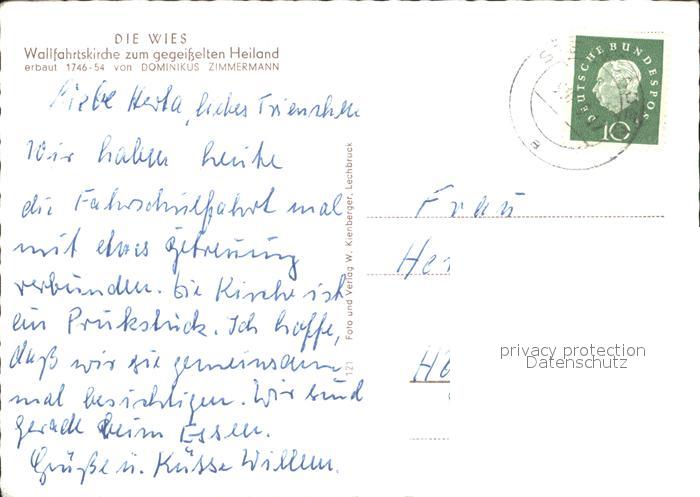 DIE WIES
Wallfahrtskirche zum gegeißelten Heiland
erbaut 1746-54 von DOMINIKUS ZIMMERMANN
Liebe Herta, liebes Trienchen
Wir haben heute
die Fahrschulfahrt mal
mit etwas
verbunden. Die Kirche ist
ein Prukstück. Ich hoffe,
daß wir sie gemeinsam
mal besichtigen. Wir sind
gerade beim Essen.
Grüße u. Küsse Willem.
121 Foto und Verlag W. Kienberger, Lechbruck
DEUTSCHE BUNDESPOST
10
Frau
He
privacy protection
Datenschutz